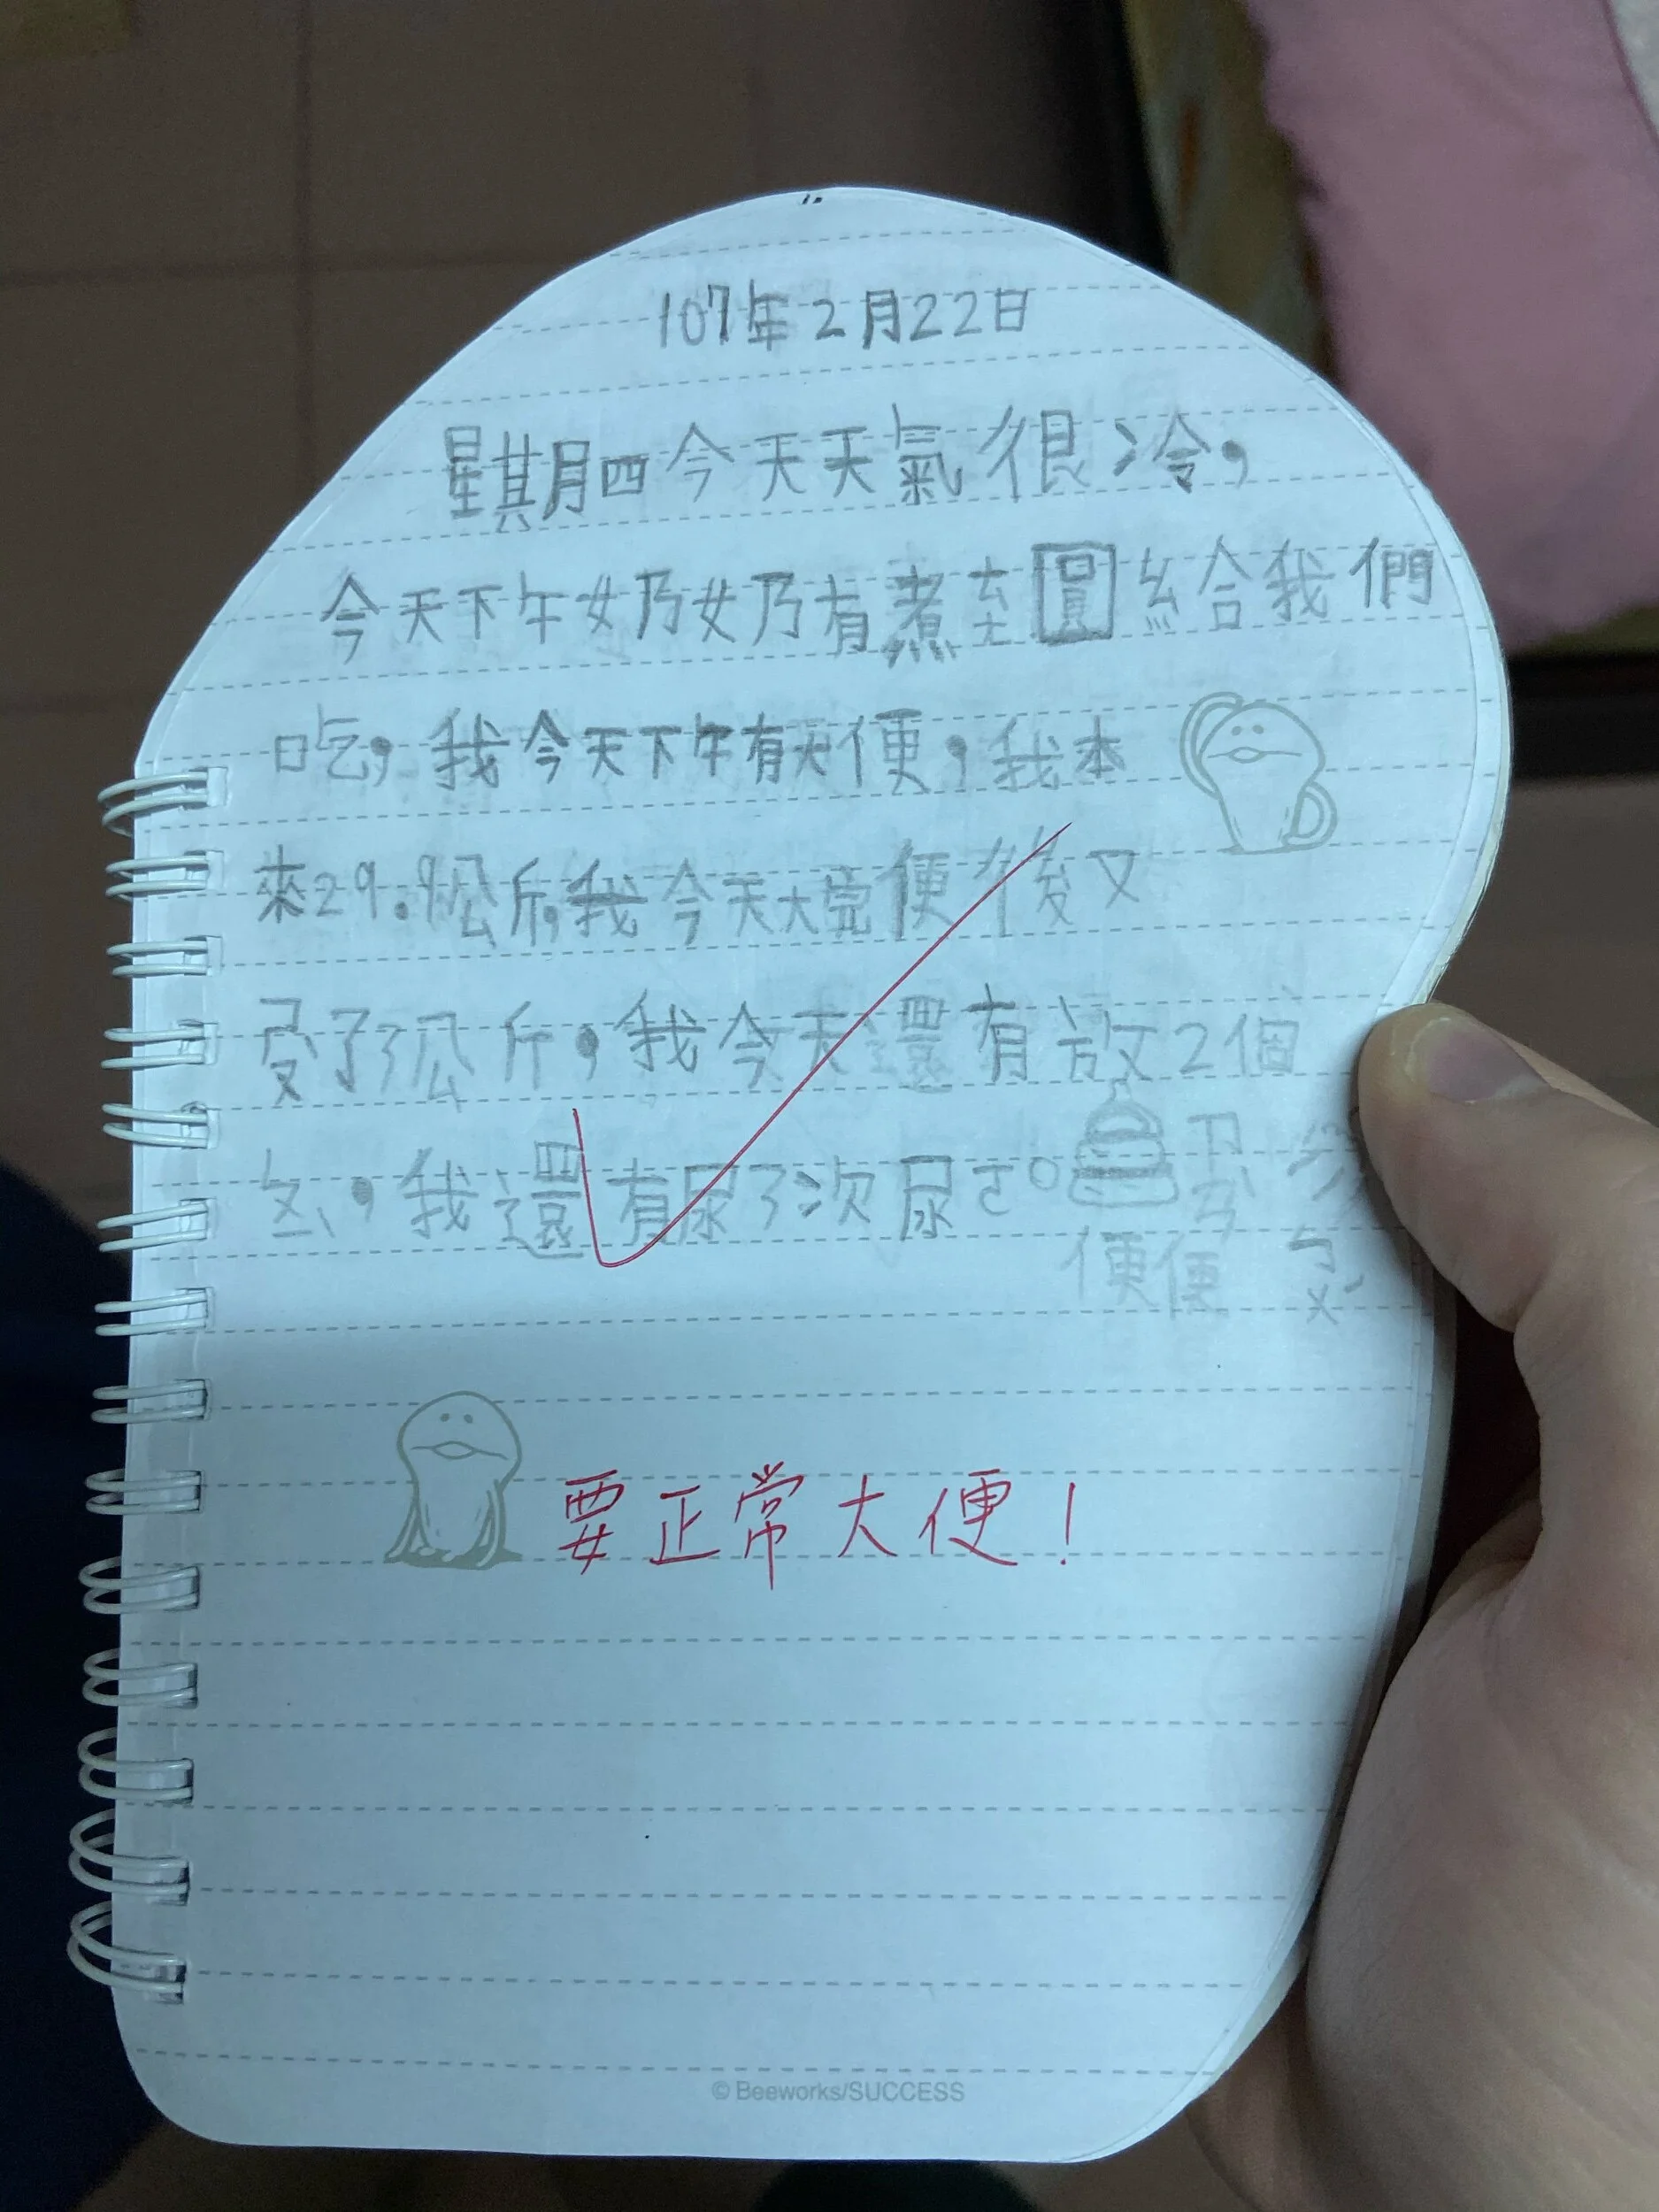 107年2月22日
星期四今天天氣很冷，
今天下午奶奶有煮圓給我們
吃，我今天下午有大便，我本
來29.9公斤，我今天大完便後又
受了3公斤，我今天還有放2個
，我還有尿了次尿。
便便
要正常大便！
© Beeworks/SUCCESS